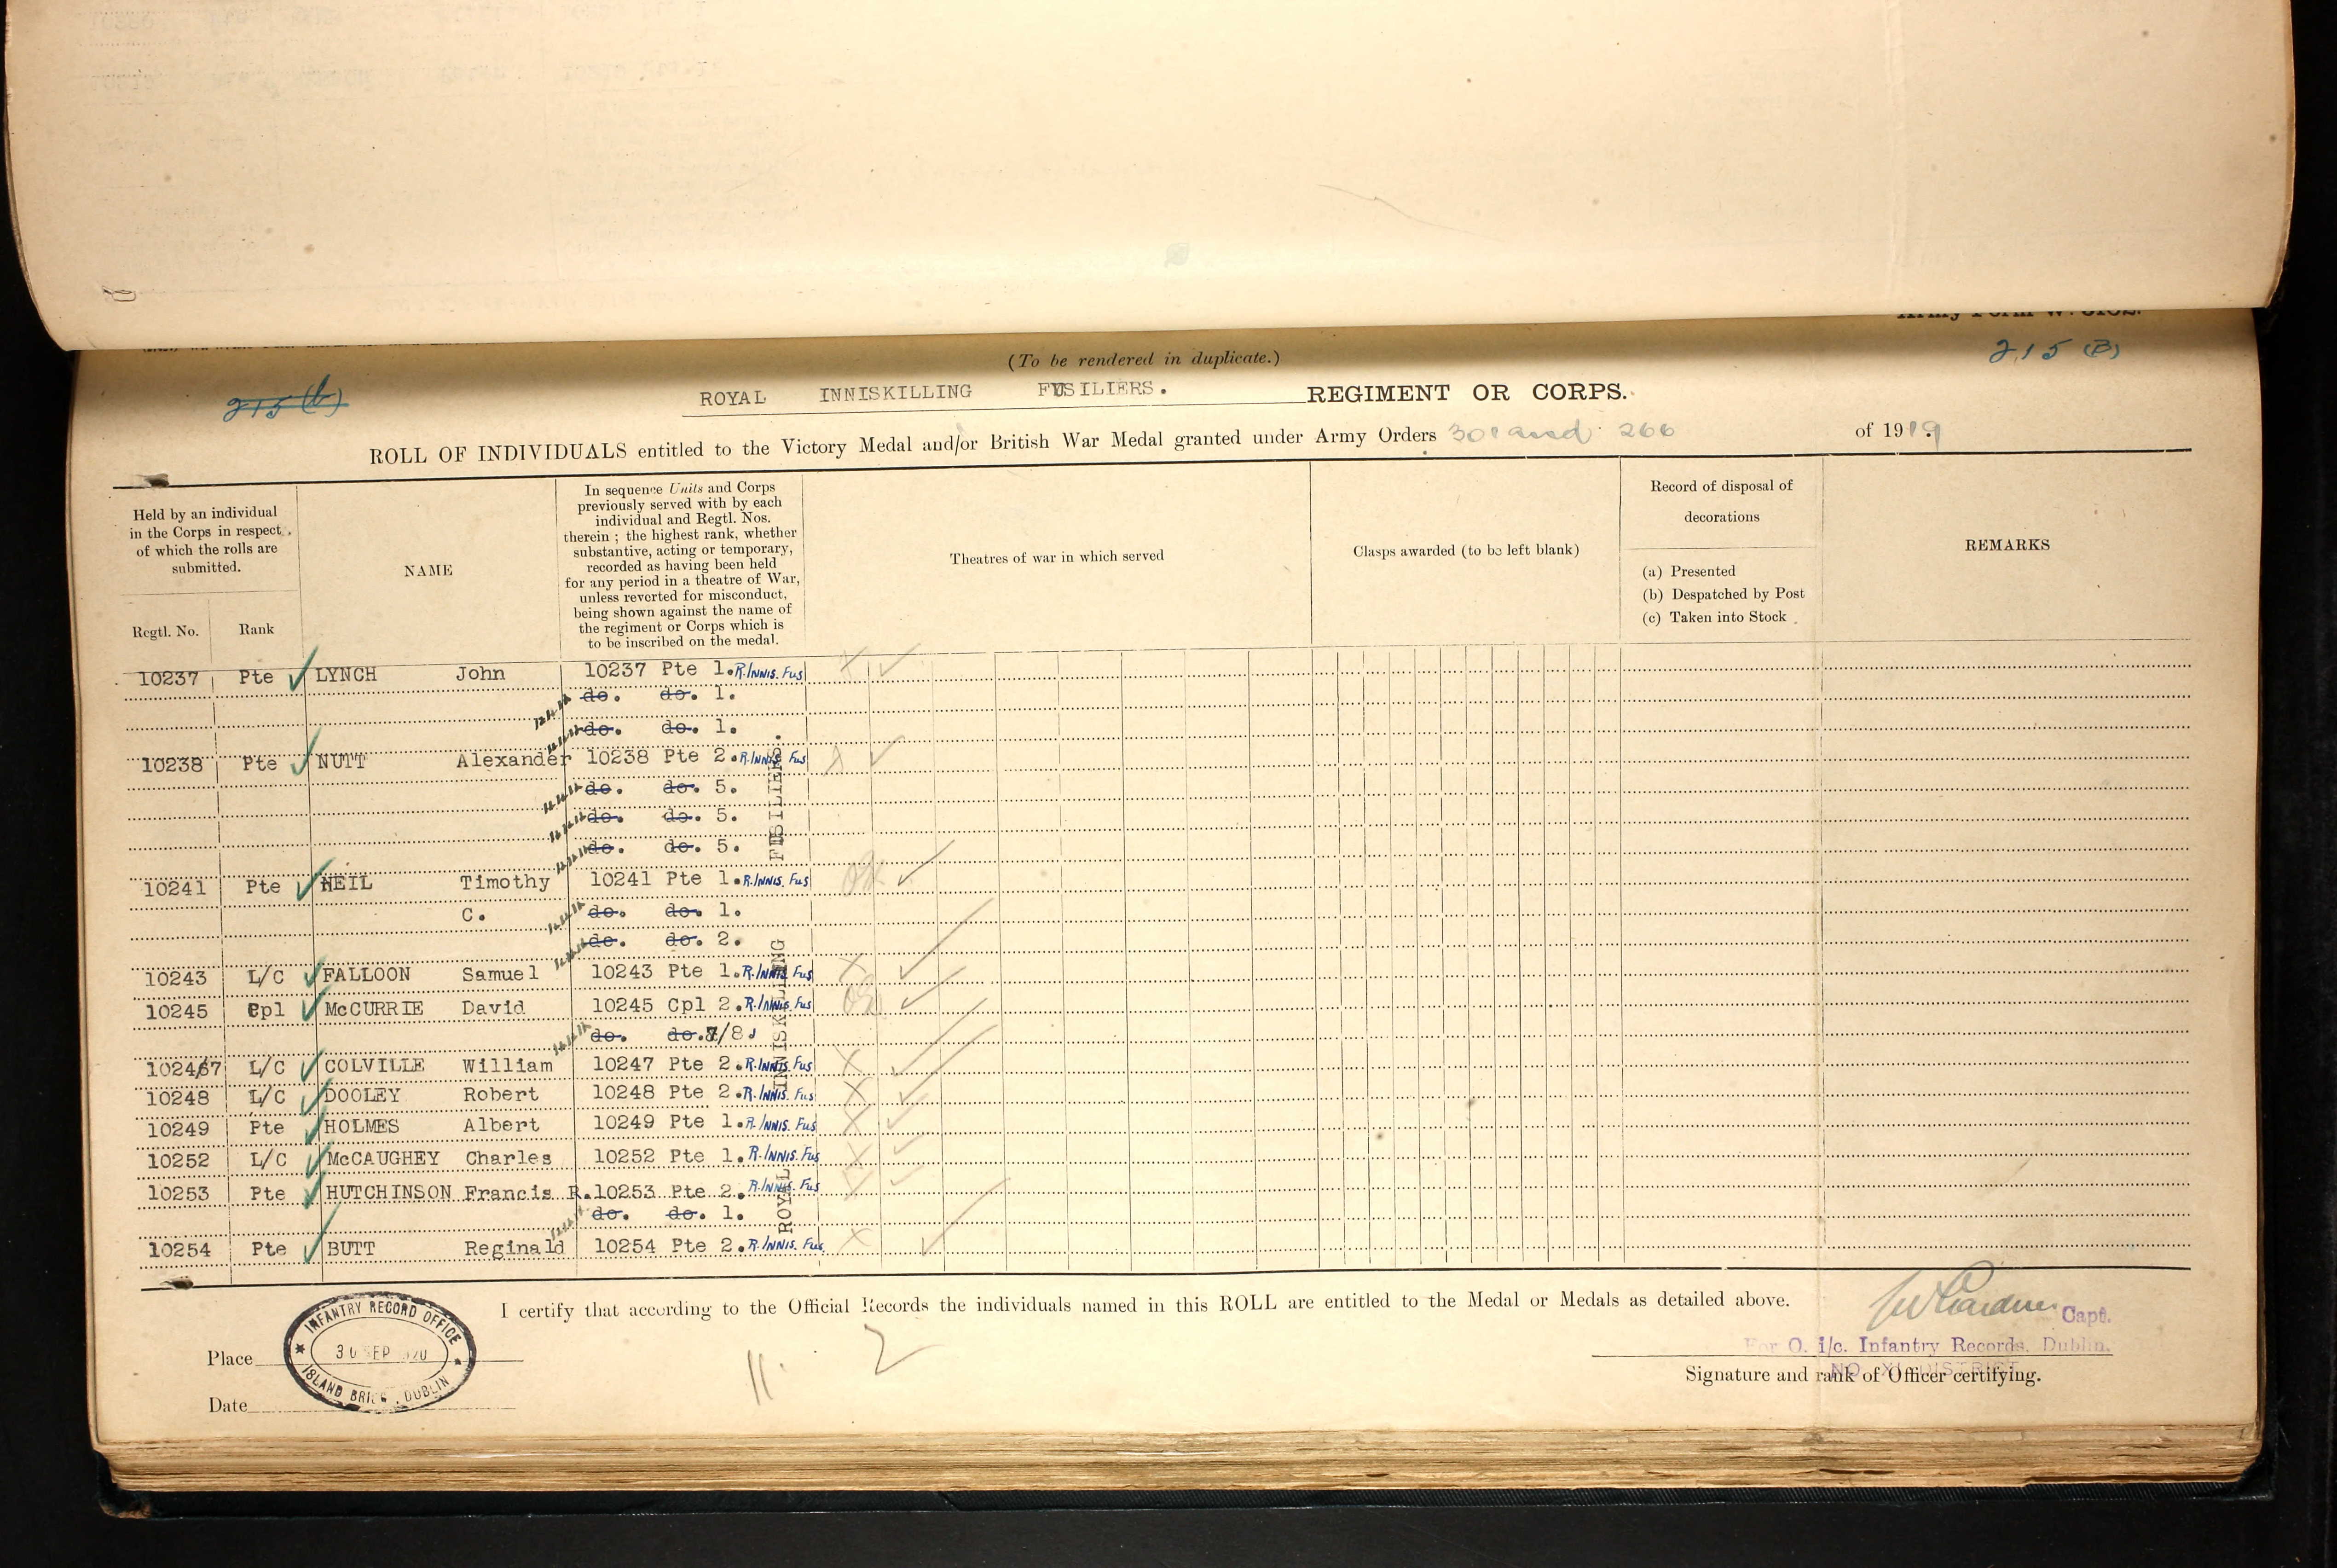 (To be rendered in duplicate.)
215 (B)
215 (b)
ROYAL INNISKILLING FUSILIERS. REGIMENT OR CORPS.
ROLL OF INDIVIDUALS entitled to the Victory Medal and/or British War Medal granted under Army Orders 301 and 266 of 1919.
Held by an individual in the Corps in respect of which the rolls are submitted.
Regtl. No.
Rank
NAME
In sequence Units and Corps previously served with by each individual and Regtl. Nos. therein; the highest rank, whether substantive, acting or temporary, recorded as having been held for any period in a theatre of War, unless reverted for misconduct, being shown against the name of the regiment or Corps which is to be inscribed on the medal.
Theatres of war in which served
Clasps awarded (to be left blank)
Record of disposal of decorations
(a) Presented
(b) Despatched by Post
(c) Taken into Stock
REMARKS
10237 Pte LYNCH John 10237 Pte 1. R. INNIS. FUS
do. do. 1.
do. do. 1.
10238 Pte NUTT Alexander 10238 Pte 2. R. INNIS. FUS
do. do. 5.
do. do. 5.
do. do. 5.
10241 Pte NEIL Timothy 10241 Pte 1. R. INNIS. FUS
C. do. do. 1.
do. do. 2.
10243 L/C FALLOON Samuel 10243 Pte 1. R. INNIS. FUS
10245 Cpl McCURRIE David 10245 Cpl 2. R. INNIS. FUS
do. do. 7/8.
10247 L/C COLVILLE William 10247 Pte 2. R. INNIS. FUS
10248 L/C DOOLEY Robert 10248 Pte 2. R. INNIS. FUS
10249 Pte HOLMES Albert 10249 Pte 1. R. INNIS. FUS
10252 L/C McCAUGHEY Charles 10252 Pte 1. R. INNIS. FUS
10253 Pte HUTCHINSON Francis R. 10253 Pte 2. R. INNIS. FUS
do. do. 1.
10254 Pte BUTT Reginald 10254 Pte 2. R. INNIS. FUS
ROYAL INNISKILLING FUSILIERS.
I certify that according to the Official Records the individuals named in this ROLL are entitled to the Medal or Medals as detailed above.
Capt.
For O. i/c. Infantry Records, Dublin.
NO. XI DISTRICT
Signature and rank of Officer certifying.
Place
INFANTRY RECORD OFFICE
30 SEP 1920
ISLAND BRIDGE, DUBLIN
Date
11. 2